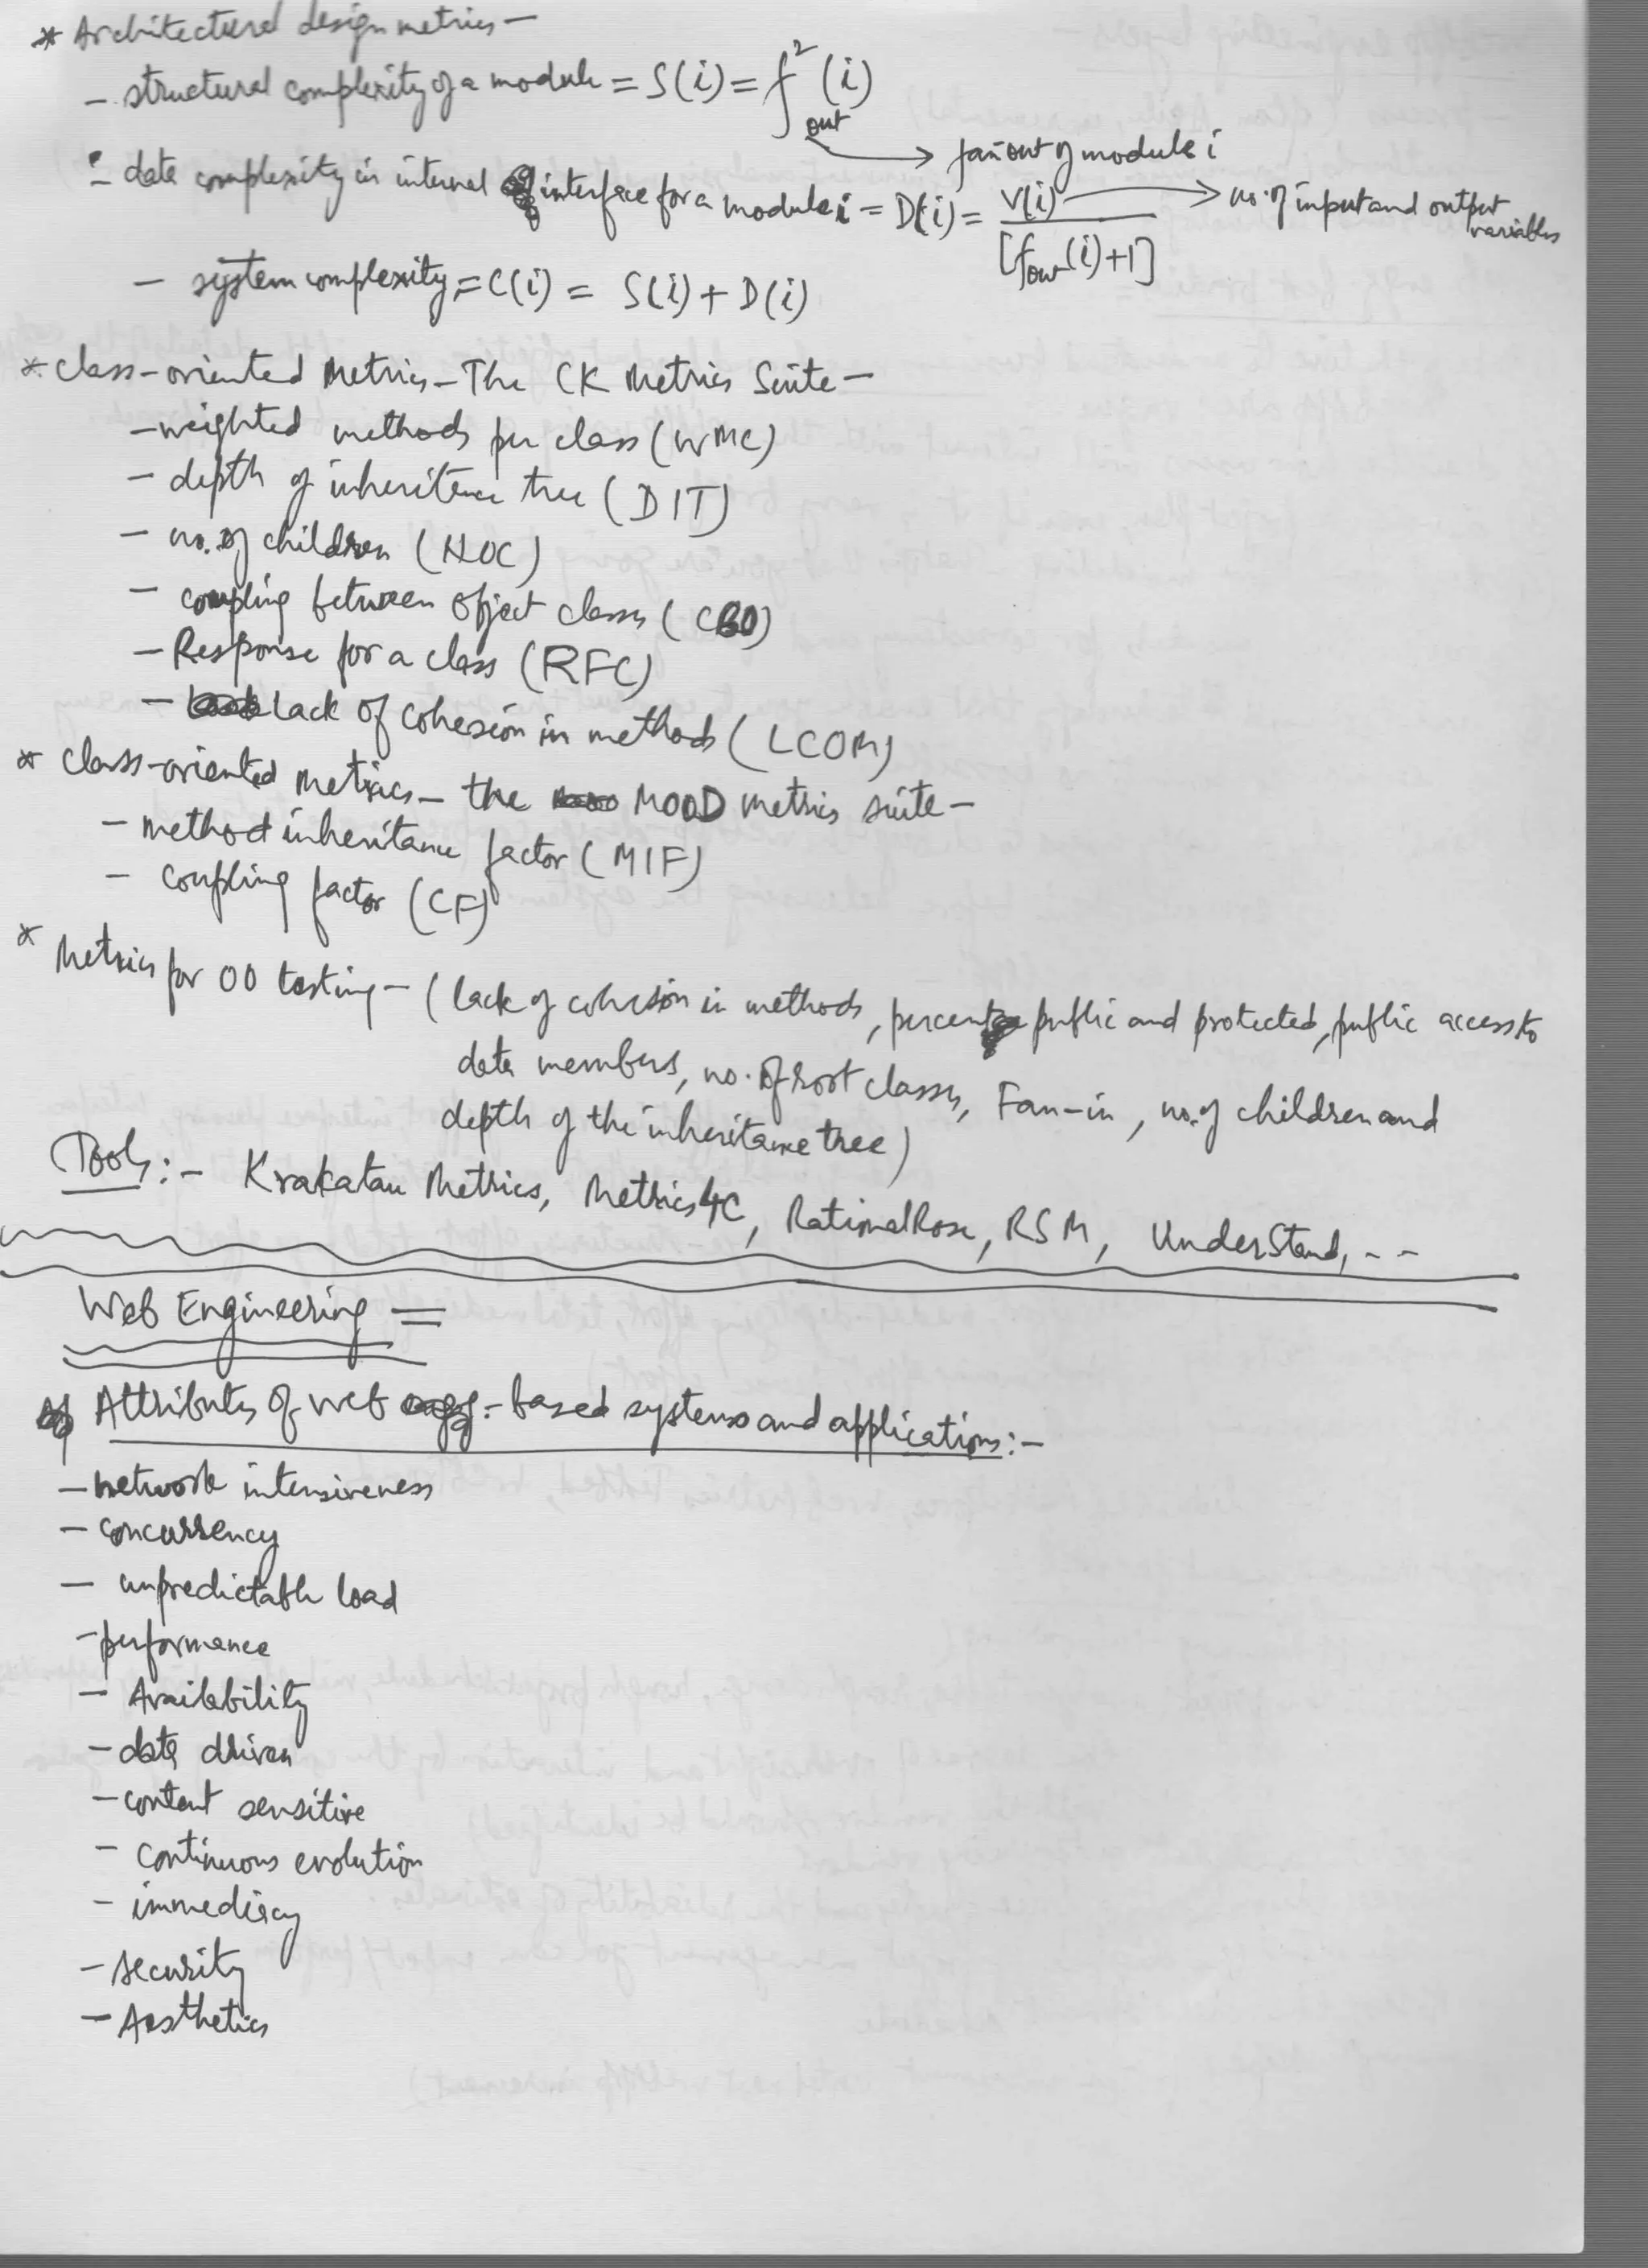 * Architectural design metrics —
- structural complexity of a module = S(i) = f²out (i)
→ fan out of module i
- data complexity in internal interface for a module i = D(i) = V(i) / [fout(i)+1] → no. of input and output variables
- system complexity = C(i) = S(i) + D(i)
* Class-oriented Metrics - The CK Metrics Suite -
- weighted methods per class (WMC)
- depth of inheritance tree (DIT)
- no. of children (NOC)
- coupling between object classes (CBO)
- Response for a class (RFC)
- Lack of cohesion in methods (LCOM)
* Class-oriented Metrics - the MOOD metrics suite -
- method inheritance factor (MIF)
- coupling factor (CF)
* Metrics for OO testing - (lack of cohesion in methods, percent public and protected, public access to
data members, no. of root classes, Fan-in, no. of children and
depth of the inheritance tree)
Tools :- Krakatau Metrics, Metrics4C, RationalRose, RSM, Understand, --
Web Engineering =
Attributes of web - based systems and applications :-
- network intensiveness
- concurrency
- unpredictable load
- performance
- Availability
- data driven
- content sensitive
- continuous evolution
- immediacy
- security
- Aesthetics